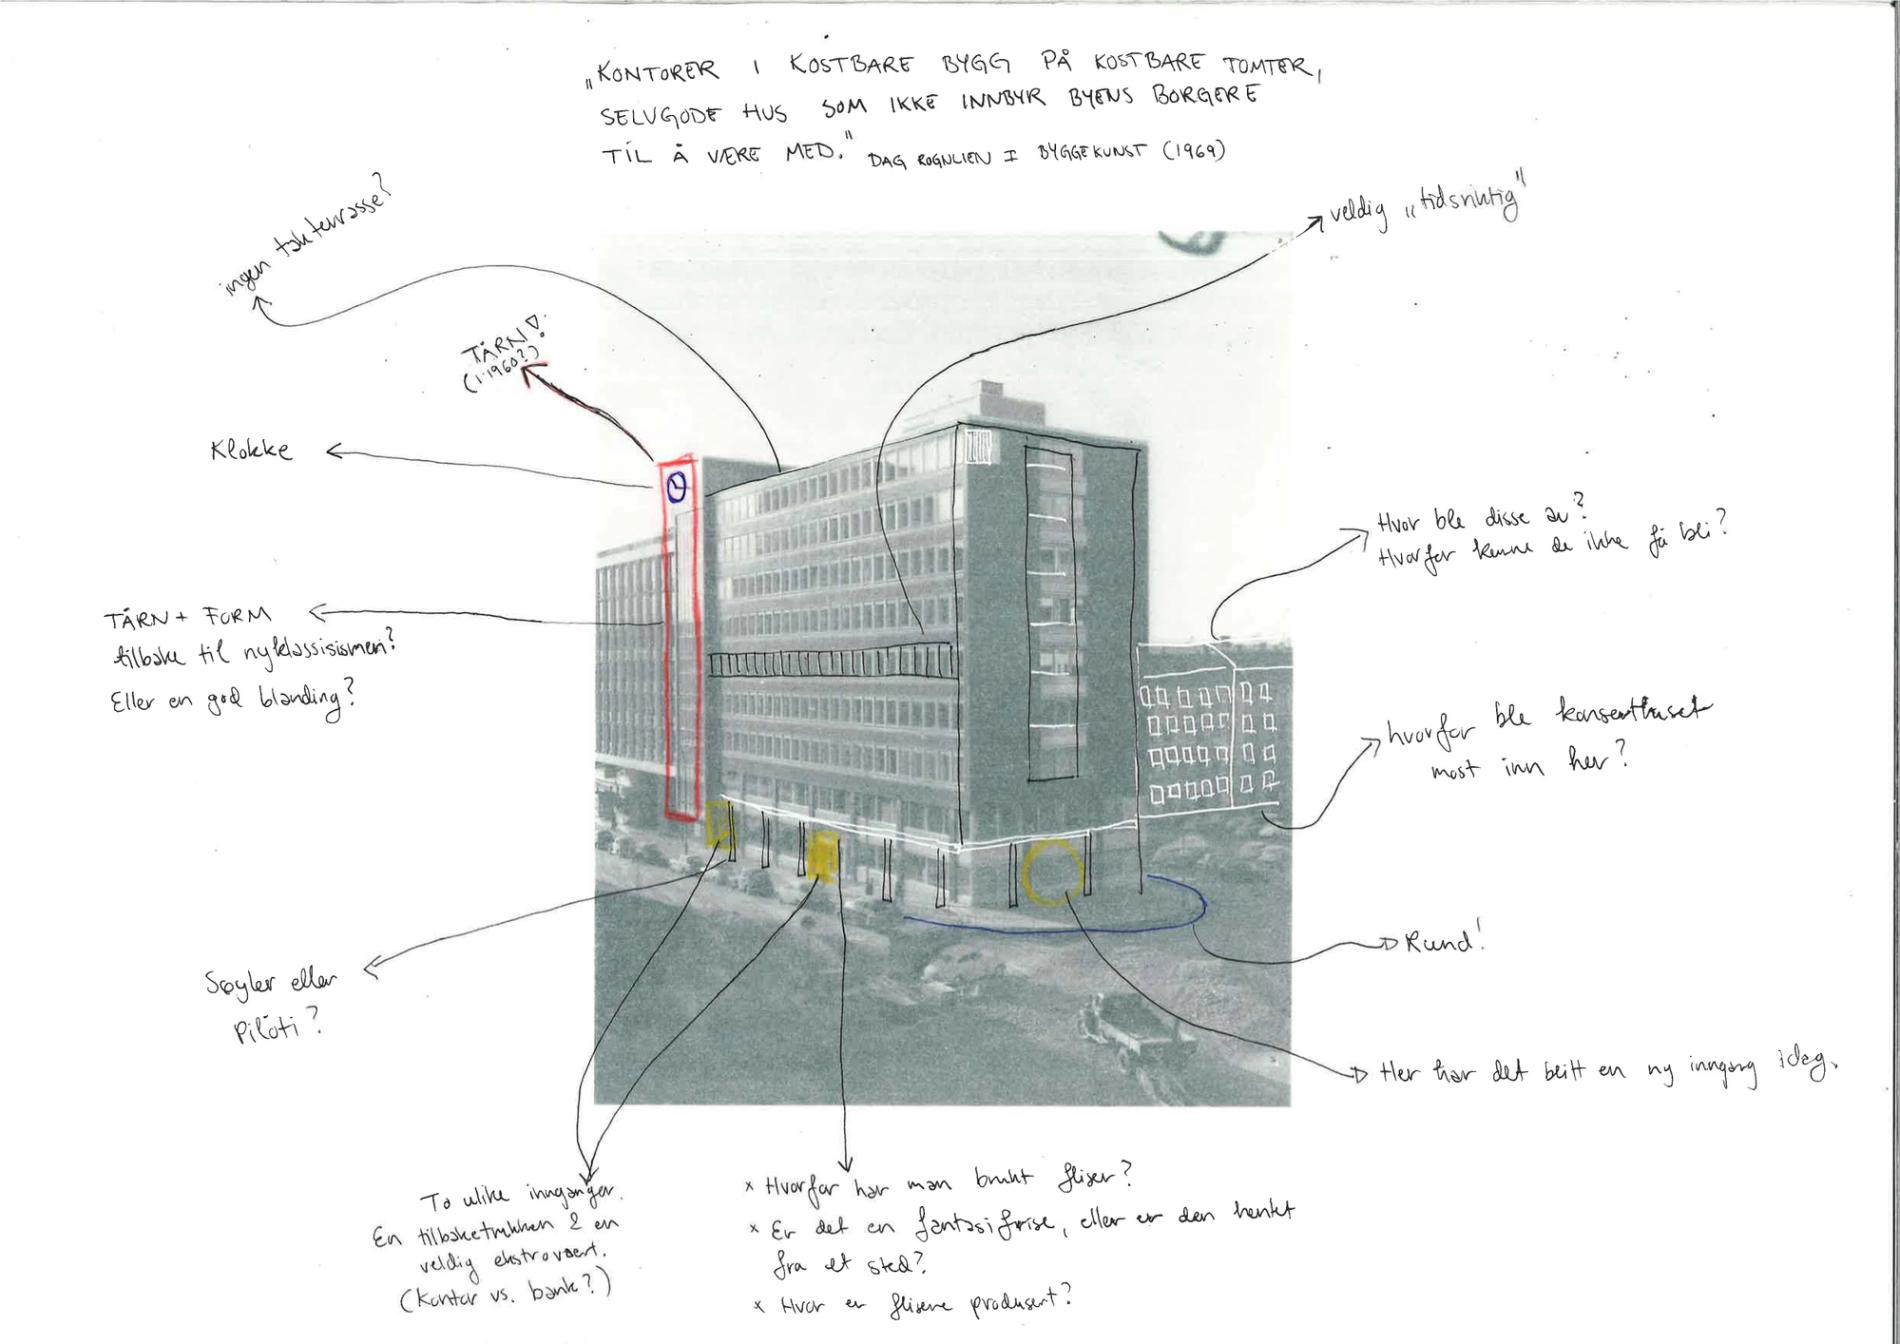 „KONTORER I KOSTBARE BYGG PÅ KOSTBARE TOMTER,
SELVGODE HUS SOM IKKE INNBYR BYENS BORGERE
TIL Å VÆRE MED." DAG ROGNLIEN I BYGGEKUNST (1969)
ingen takterrasse?
veldig „tidsriktig"
TÅRN!
(i 1960?)
Klokke
Hvor ble disse av?
Hvorfor kunne de ikke få bli?
TÅRN + FORM
tilbake til nyklassisismen?
Eller en god blanding?
hvorfor ble konserthuset
most inn her?
Rund!
Søyler eller
Piloti?
Her har det blitt en ny inngang idag.
To ulike innganger.
En tilbaketrukken & en
veldig ekstrovert.
(Kontor vs. bank?)
x Hvorfor har man brukt fliser?
x Er det en fantasifrise, eller er den hentet
fra et sted?
x Hvor er flisene produsert?